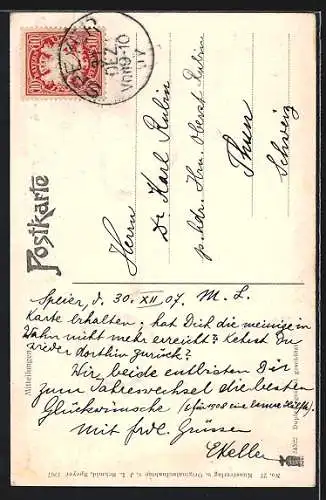 10 10
SPEYER
DEZ.
Vorm 9-10
07
Postkarte
Herrn
Dr. Karl Rubin
p. Adr. Hrn. Oberst Rubin
Thun
Schweiz
Mitteilungen
Speier, d. 30. XII 07. M. L.
Karte erhalten; hat Dich die meinige in
nicht mehr erreicht? Kehrst Du
wieder dorthin zurück?
Wir beide entbieten Dir
zum Jahreswechsel die besten
Glückwünsche (für 1908 eine
Mit frdl. Grüssen
EKeller
No. 27 Kunstverlag u. Originalaufnahme v. J. L. Schmidt, Speyer 1907